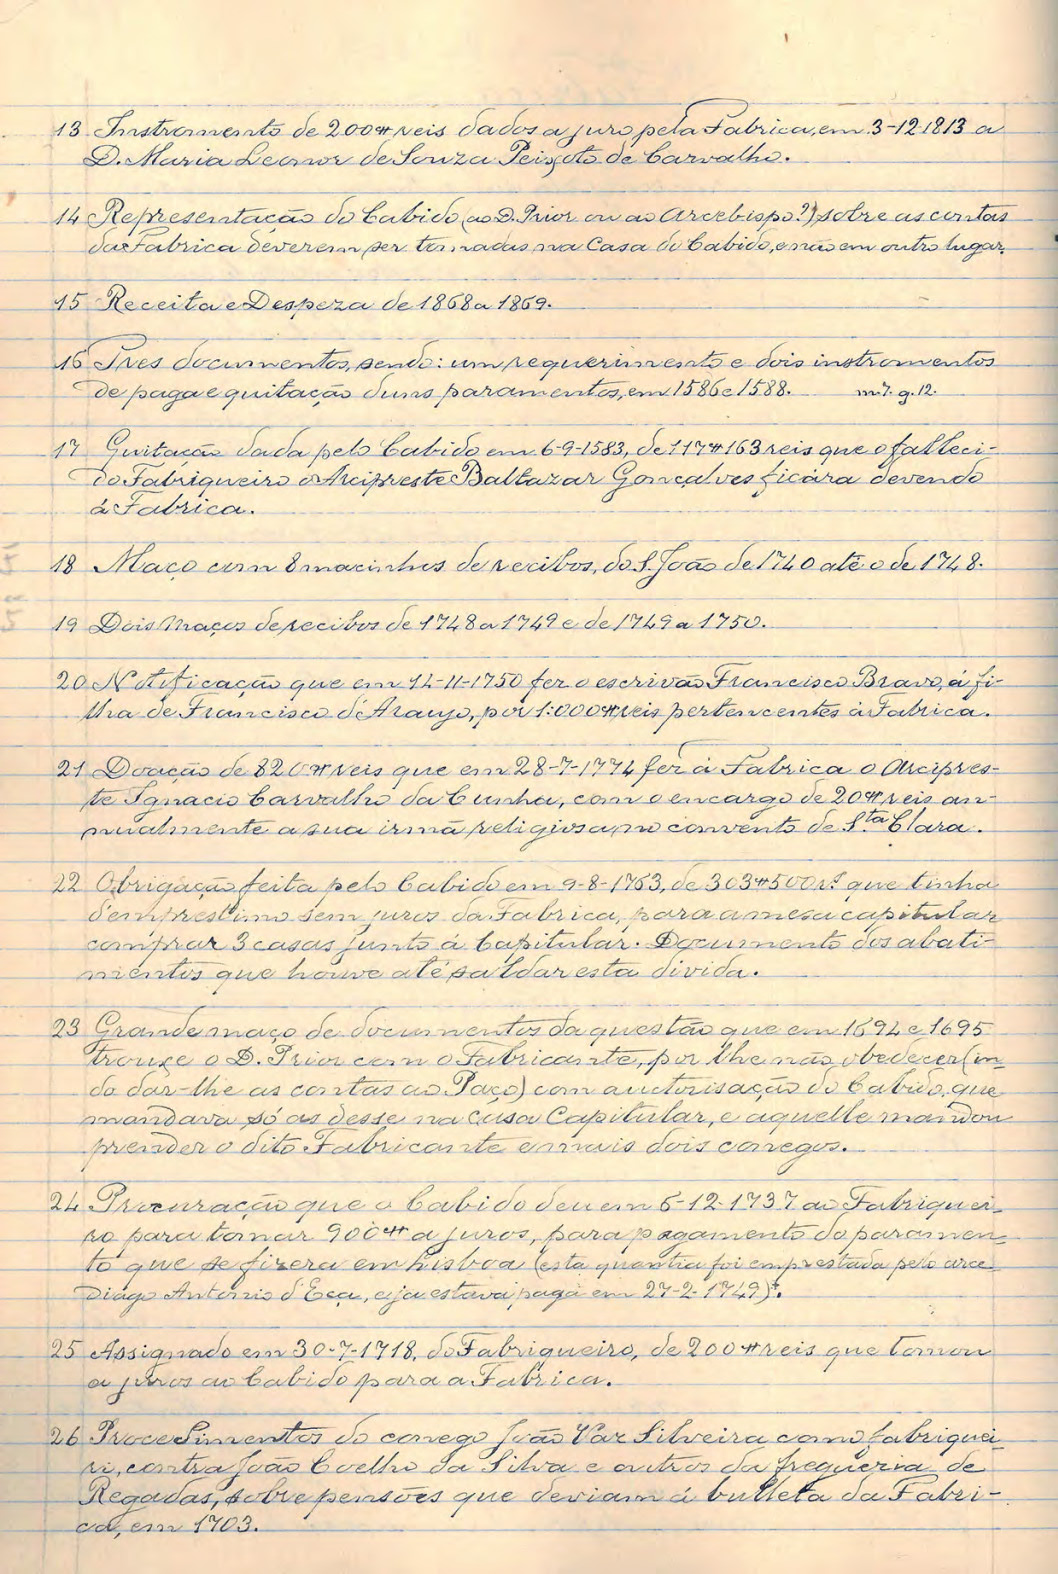 13 Instromento de 200#reis dados a juro pela Fabrica, em 3-12-1813 a
D. Maria Leonor de Souza Peixoto de Carvalho.
14 Representação do Cabido (ao D. Prior ou ao Arcebispo?) sobre as contas
da Fabrica deverem ser tomadas na Casa do Cabido, e não em outro lugar.
15 Receita e Despeza de 1868 a 1869.
16 Tres documentos, sendo: um requerimento e dois instromentos
de paga e quitação duns paramentos, em 1586 e 1588. m.7. g. 12.
17 Quitação dada pelo Cabido em 6-9-1583, de 117#163 reis que o falleci-
do Fabriqueiro o Arcipreste Baltazar Gonçalves ficára devendo
á Fabrica.
18 Maço com 8 macinhos de recibos, do S. João de 1740 até o de 1748.
19 Dois Maços de recibos de 1748 a 1749 e de 1749 a 1750.
20 Notificação que em 14-11-1750 fez o escrivão Francisco Bravo, á fi-
lha de Francisco d'Araujo, por 1:000#reis pertencentes á Fabrica.
21 Doação de 820#reis que em 28-7-1774 fez á Fabrica o Arcipres-
te Ignacio Carvalho da Cunha, com o encargo de 20#reis an-
nualmente a sua irmã religiosa no convento de Sta Clara.
22 Obrigação feita pelo Cabido em 9-8-1763, de 303#500 rs. que tinha
d'emprestimo sem juros da Fabrica, para a mesa capitular
comprar 3 casas junto á Capitular. Documento dos abati-
mentos que houve até saldar esta divida.
23 Grande maço de documentos da questão que em 1694 e 1695
trouxe o D. Prior com o Fabricante, por lhe não obedecer (in-
do dar-lhe as contas ao Paço) com auctorisação do Cabido, que
mandava só as desse na Casa Capitular, e aquelle mandou
prender o dito Fabricante e mais dois conegos.
24 Procuração que o Cabido deu em 6-12-1737 ao Fabriquei-
ro para tomar 900# a juros, para pagamento do paramen-
to que se fizera em Lisboa (esta quantia foi emprestada pelo arce-
diago Antonio d'Eça, e ja estava paga em 27-2-1749).
25 Assignado em 30-7-1718, do Fabriqueiro, de 200#reis que tomou
a juros ao Cabido para a Fabrica.
26 Procedimentos do conego João Vaz Silveira como fabriquei-
ro, contra João Coelho da Silva e outros da freguezia de
Regadas, sobre pensões que deviam á bulleta da Fabri-
ca, em 1703.